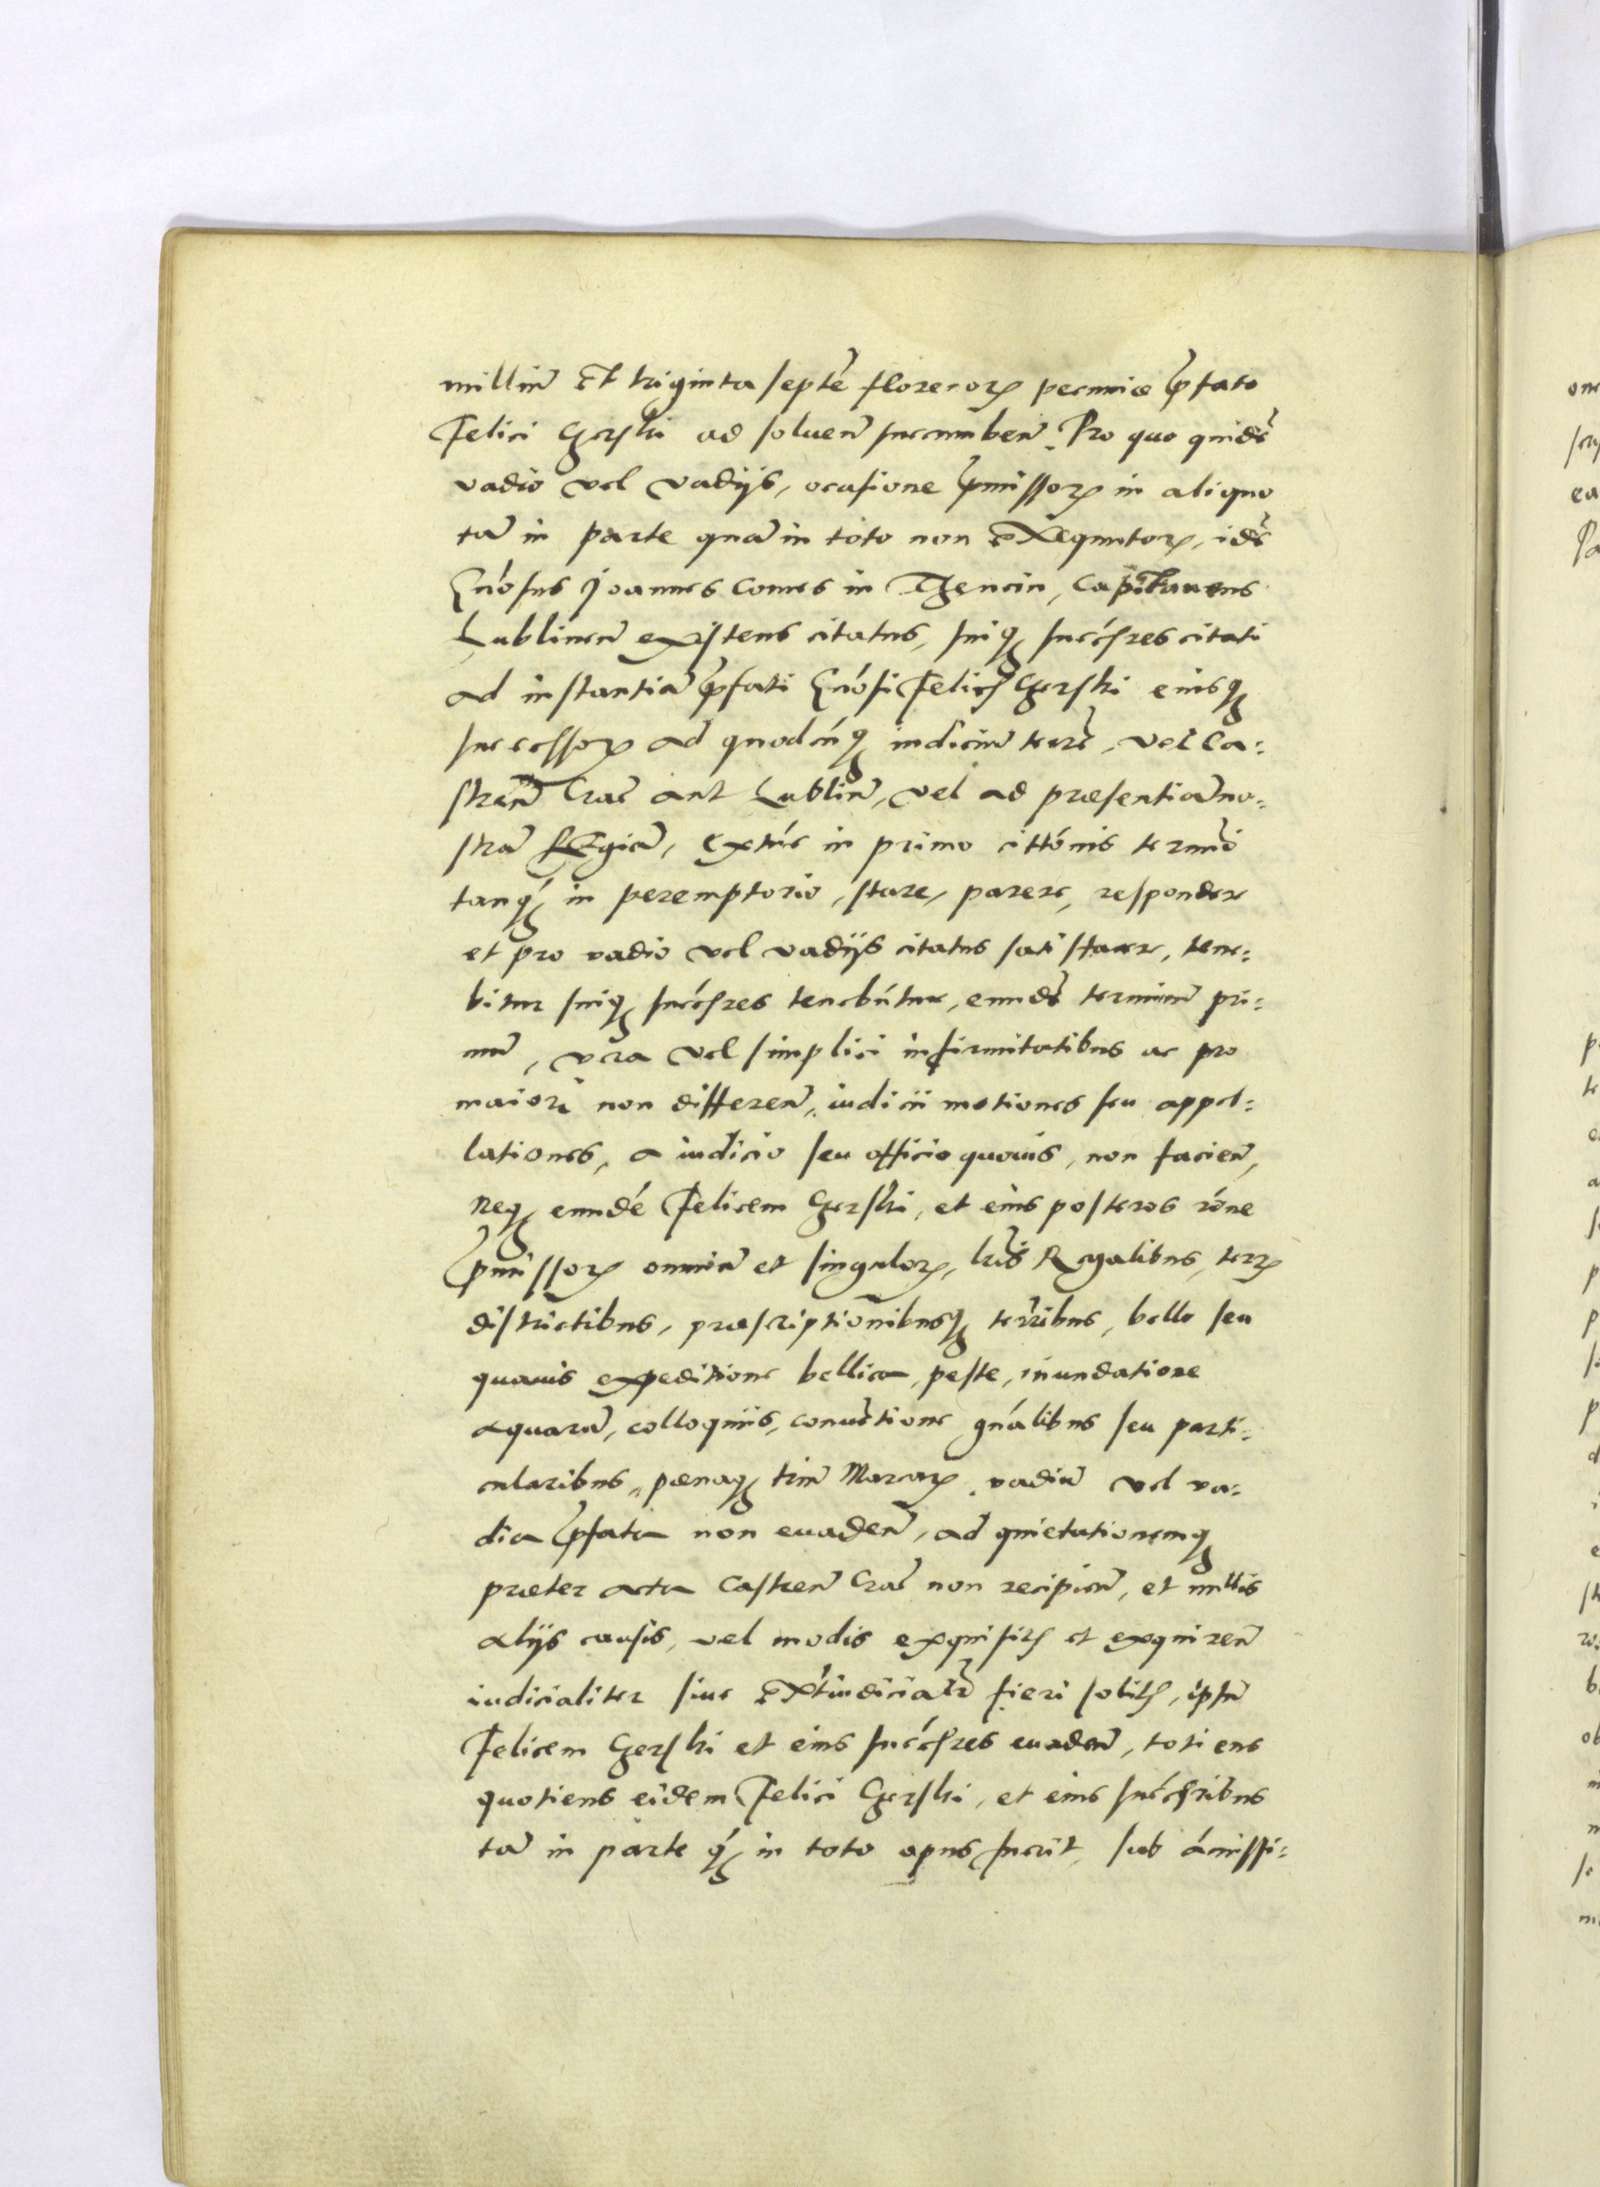 milliū et triginta septē florenorꝫ pecuniæ p̄fato
Felici Gerski ad soluen̄ succumben̄. Pro quo quidē
vadio vel vadijs, ocasione p̄missorꝫ in aliquo
tā in parte quā in toto non exequutorꝫ, idē
Gn̄osus Joannes comes in Thencin, Capitaneus
Lublineñ existens citatus, suiqꝫ succ̄sres citati
ad instantiā p̄fati Gn̄osi Felicis Gerski eiusqꝫ
successorꝫ ad quodcūqꝫ iudiciū terrē, vel Ca-
streñ Crac̄ aut Lubliñ, vel ad præsentiā no-
strā Regiā, extūc in primo cittōnis termīo
tanqꝫ in peremptorio, stare, parere, respondere
et pro vadio vel vadijs citatus satisfacere, tene-
bitur suiqꝫ succ̄sres tenebūtur, eundē terminū pri-
mū, vera vel simplici infirmitatibus ac pro
maiori non differeñ, iudicii motiones seu appel-
lationes, a iudicio seu officio quouis, non facieñ,
neqꝫ eundē Felicem Gerski, et eius posteros rōne
p̄missorꝫ omniū et singulorꝫ, lr̄is Regalibus, terrꝫ
districtibus, præscriptionibusqꝫ terrībus, bello seu
quauis expeditione bellica, peste, inundatione
aquarū, colloquiis, conuētione gn̄alibus seu parti-
cularibus, pœnaqꝫ triū Marcarꝫ, vadiū vel va-
dia p̄fata non euadeñ, ad quietationemqꝫ
præter acta Castreñ Crac̄ non recipieñ, et nullis
alijs causis, vel modis exquisitis et exquireñ
iudicialiter siue extraiudicialr̄ fieri solitis, ipsū
Felicem Gerski et eius succ̄sres euadeñ, totiens
quotiens eidem Felici Gerski, et eius succ̄sribus
tā in parte qꝫ in toto opus fuerit, sub amissi-